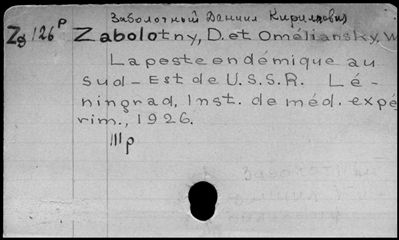 Заболотный Даниил Кириллович
Zg 126 P Zabolotny, D. et Oméliansky, W
La peste endémique au
sud-Est de U.S.S.R. Lé-
ningrad, Inst. de méd. expé
rim., 1926.
III p